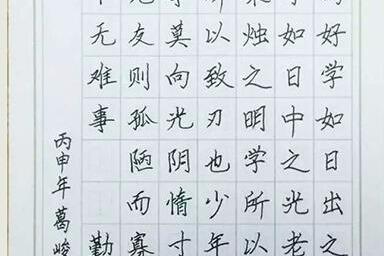 好学如日出之
如日中之光老
烛之明学所以
以致刃也少年
莫向光阴惰寸
友则孤陋而寡
无难事勤
丙申年葛峻